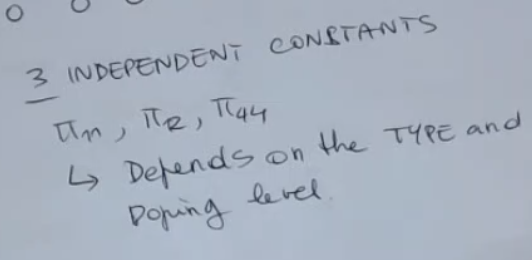 3 INDEPENDENT CONSTANTS
π11, π12, π44
↳ Depends on the TYPE and
Doping level.